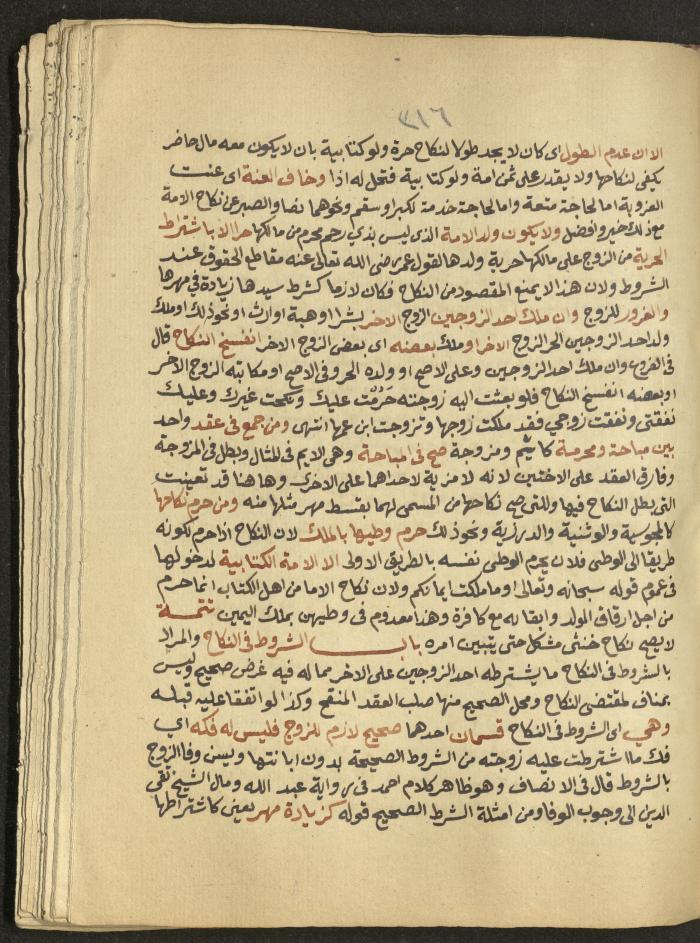 ٣١٦
الا ان عدم الطول اى كان لا يجد طولا لنكاح حرة ولو كتابية بان لا يكون معه مال حاضر
يكفى لنكاحها ولا يقدر على ثمن امة ولو كتابية فتحل له اذا وخاف العنة اى عنت
العزوبة اما لحاجة متعة واما لحاجة خدمة لكبر او سقم ونحوهما نصا والصبر عن نكاح الامة
مع ذلك خير وافضل ولا يكون ولد الامة الذى ليس بذي رحم محرم من مالكها حرا الا باشتراط
الحرية من الزوج على مالكها حرية ولدها لقول عمر رضى الله تعالى عنه مقاطع الحقوق عند
الشروط ولان هذا لا يمنع المقصود من النكاح فكان لازما كشرط سيدها زيادة في مهرها
والغرور للزوج وان ملك احد الزوجين الزوج الاخر بشرا او هبة او ارث او نحو ذلك او ملك
ولد احد الزوجين الحر الزوج الاخر او ملك بعضه اى بعض الزوج الاخر انفسخ النكاح قال
فى الفروع وان ملك احد الزوجين وعلى الاصح او ولده الحر وفى الاصح او مكاتبه الزوج الاخر
او بعضه انفسخ النكاح فلو بعثت اليه زوجته حرمت عليك ونكحت غيرك وعليك
نفقتى ونفقت زوجي فقد ملكت زوجها وتزوجت ابن عمها انتهى ومن جمع فى عقد واحد
بين مباحة ومحرمة كايم ومزوجة صح فى المباحة وهى الايم فى المثال وبطل فى المزوجة
وفارق العقد على الاختين لانه لا مزية لاحداهما على الاخرى وهاهنا قد تعينت
التى بطل النكاح فيها وللتى صح نكاحها من المسمى لهما بقسط مهر مثلها منه ومن حرم نكاحها
كالمجوسية والوثنية والدرزية ونحو ذلك حرم وطيها بالملك لان النكاح اذا حرم لكونه
طريقا الى الوطى فلان يحرم الوطى نفسه بالطريق الاولى الا الامة الكتابية لدخولها
فى عموم قوله سبحانه وتعالى او ما ملكت ايمانكم ولان نكاح الاما من اهل الكتاب انما حرم
من اجل ارقاق الولد وابقائه مع كافرة وهذا معدوم فى وطيهن بملك اليمين تتمــة
لا يصح نكاح خنثى مشكل حتى يتبين امره بــاب الشروط فى النكاح والمراد
بالشروط فى النكاح ما يشترطه احد الزوجين على الاخر مما له فيه غرض صحيح وليس
بمناف لمقتضى النكاح ومحل الصحيح منها صلب العقد المنقح وكذا لو اتفقا عليه قبله
وهي اى الشروط فى النكاح قسمان احدها صحيح لازم للزوج فليس له فكه اي
فك ما اشترطت عليه زوجته من الشروط الصحيحة بدون ابانتها ويسن وفا الزوج
بالشروط قال فى الانصاف وهو ظاهر كلام احمد فى رواية عبد الله ومال الشيخ تقى
الدين الى وجوب الوفا ومن امثلة الشرط الصحيح قوله كزيادة مهر يعنى كاشتراطها